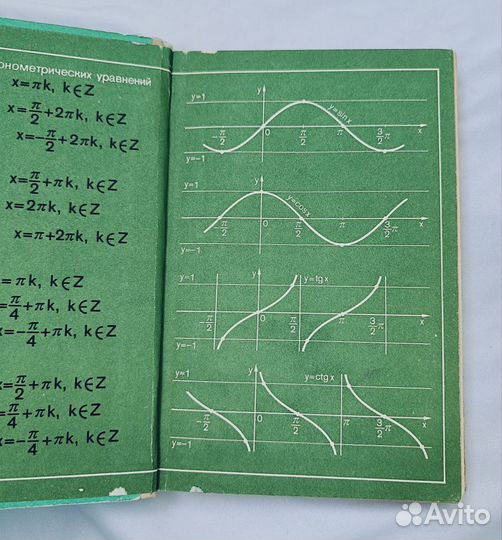 онометрических уравнений
x=πk, k∈Z
x=π/2+2πk, k∈Z
x=-π/2+2πk, k∈Z
x=π/2+πk, k∈Z
x=2πk, k∈Z
x=π+2πk, k∈Z
=πk, k∈Z
=π/4+πk, k∈Z
x=-π/4+πk, k∈Z
x=π/2+πk, k∈Z
=π/4+πk, k∈Z
x=-π/4+πk, k∈Z
y
y=1
y=sinx
-π/2 0 π/2 π 3/2π x
y=-1
y
y=1
y=cosx
-π/2 0 π/2 π 3/2π x
y=-1
y
y=1
y=tgx
π/2 0 π/2 π 3/2π x
y=-1
y
y=1
y=ctgx
-π/2 0 π/2 π 3/2π x
y=-1
Avito